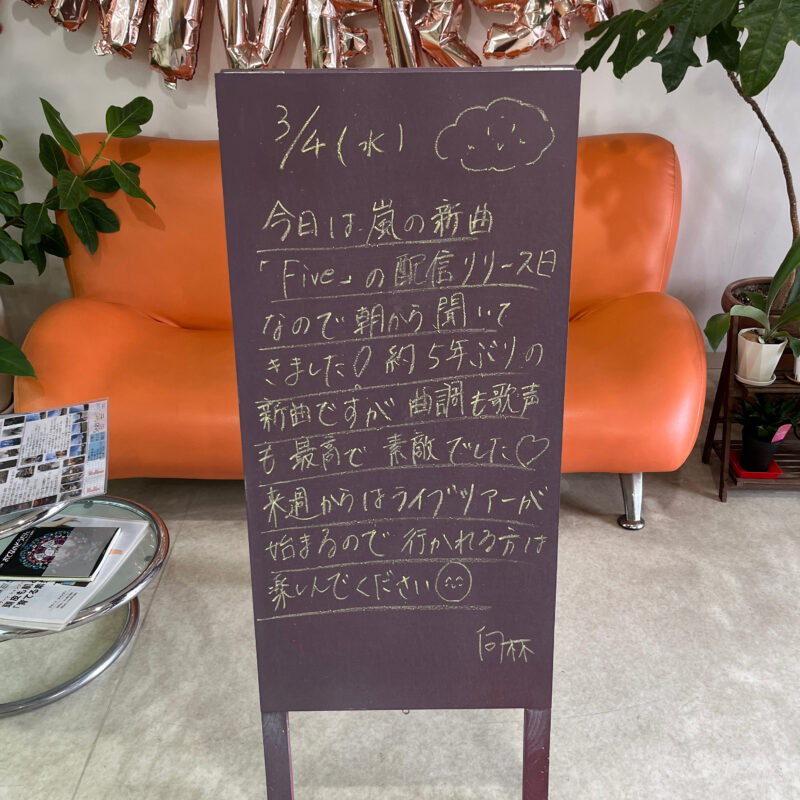 3/4(水)
今日は嵐の新曲
「Five」の配信リリース日
なので朝から聞いて
きました! 約5年ぶりの
新曲ですが 曲調も歌声
も最高で 素敵でした♡
来週からはライブツアーが
始まるので 行かれる方は
楽しんでください